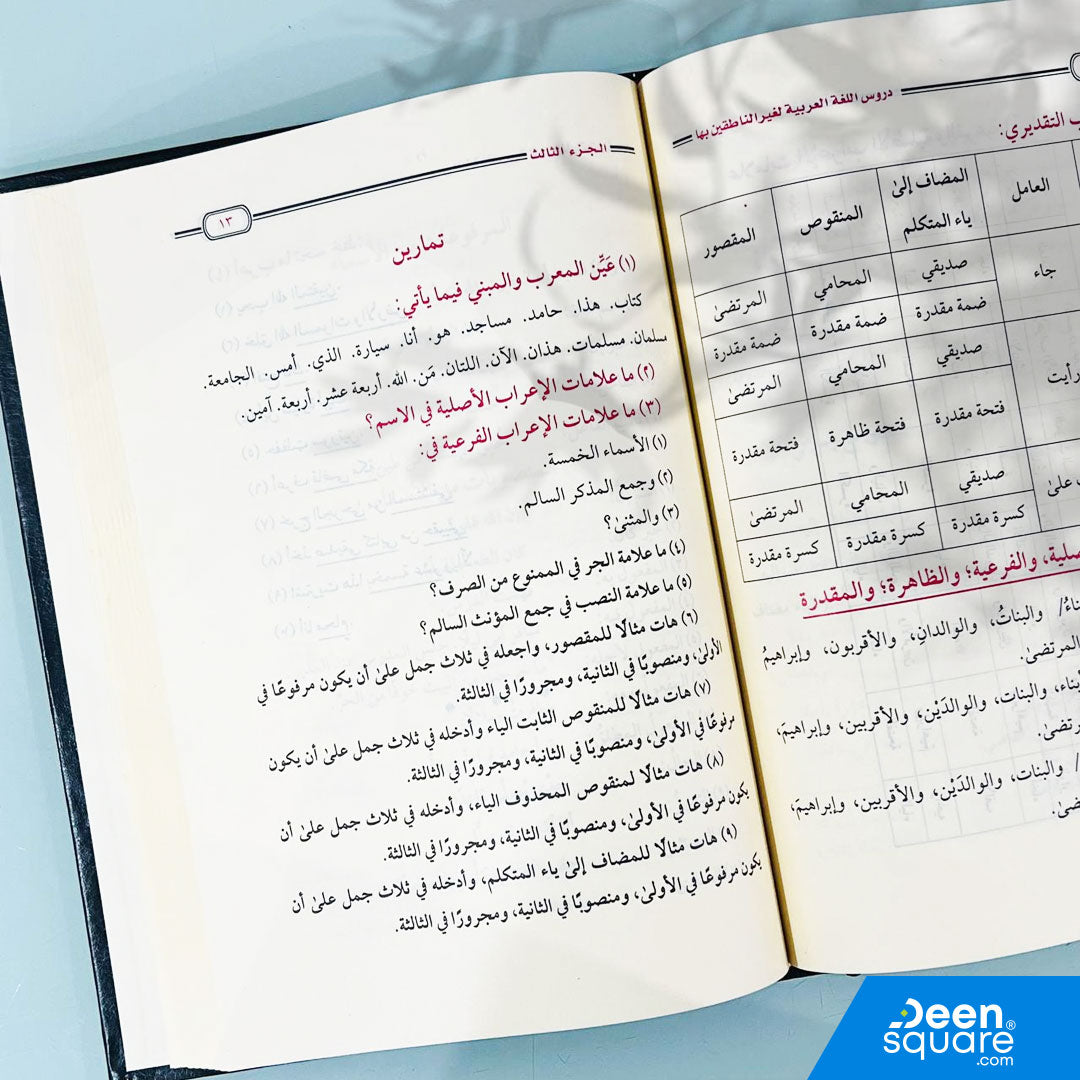 دروس اللغة العربية لغير الناطقين بها
التقديري:
العامل
المضاف إلىٰ ياء المتكلم
المنقوص
المقصور
جاء
صديقي
المحامي
المرتضىٰ
ضمة مقدرة
ضمة مقدرة
ضمة مقدرة
رأيت
صديقي
المحامي
المرتضىٰ
فتحة مقدرة
فتحة ظاهرة
فتحة مقدرة
علىٰ
صديقي
المحامي
المرتضىٰ
كسرة مقدرة
كسرة مقدرة
كسرة مقدرة
والفرعية؛ والظاهرة؛ والمقدرة
والبناتُ، والوالدانِ، والأقربون، وإبراهيمُ
المرتضىٰ.
والبنات، والوالدَيْن، والأقربين، وإبراهيمَ،
/ والبنات، والوالدَيْن، والأقربين، وإبراهيمَ،
الجزء الثالث
١٣
تمارين
(١) عَيِّن المعرب والمبني فيما يأتي:
كتاب. هذا. حامد. مساجد. هو. أنا. سيارة. الذي. أمس. الجامعة.
مسلمان. مسلمات. هذان. الآن. اللتان. مَن. الله. أربعة عشر. أربعة. آمين.
(٢) ما علامات الإعراب الأصلية في الاسم؟
(٣) ما علامات الإعراب الفرعية في:
(١) الأسماء الخمسة.
(٢) وجمع المذكر السالم.
(٣) والمثنىٰ؟
(٤) ما علامة الجر في الممنوع من الصرف؟
(٥) ما علامة النصب في جمع المؤنث السالم؟
(٦) هات مثالًا للمقصور، واجعله في ثلاث جمل علىٰ أن يكون مرفوعًا في
الأولىٰ، ومنصوبًا في الثانية، ومجرورًا في الثالثة.
(٧) هات مثالًا للمنقوص الثابت الياء وأدخله في ثلاث جمل علىٰ أن يكون
مرفوعًا في الأولىٰ، ومنصوبًا في الثانية، ومجرورًا في الثالثة.
(٨) هات مثالًا لمنقوص المحذوف الياء، وأدخله في ثلاث جمل علىٰ أن
يكون مرفوعًا في الأولىٰ، ومنصوبًا في الثانية، ومجرورًا في الثالثة.
(٩) هات مثالًا للمضاف إلىٰ ياء المتكلم، وأدخله في ثلاث جمل علىٰ أن
يكون مرفوعًا في الأولىٰ، ومنصوبًا في الثانية، ومجرورًا في الثالثة.
Deen®
square
.com